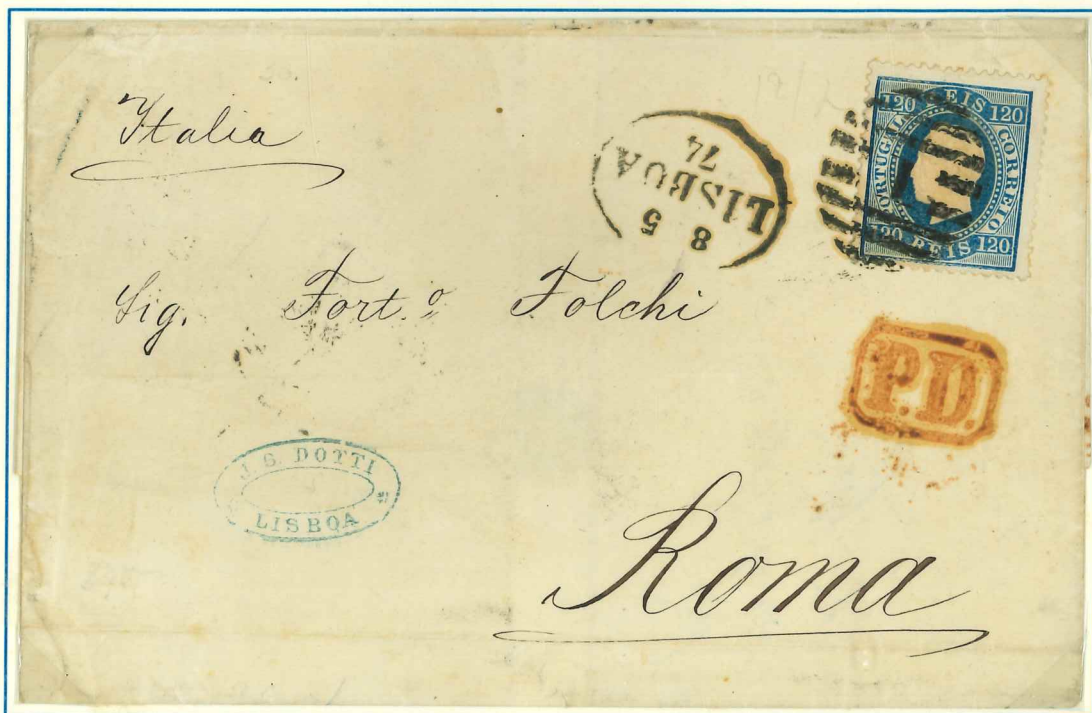 Italia
LISBOA
8 5
74
120 REIS 120
PORTUGAL
CORREIO
120 REIS 120
Sig. Fort.º Folchi
P.D.
J. G. DOTTI
LISBOA
Roma